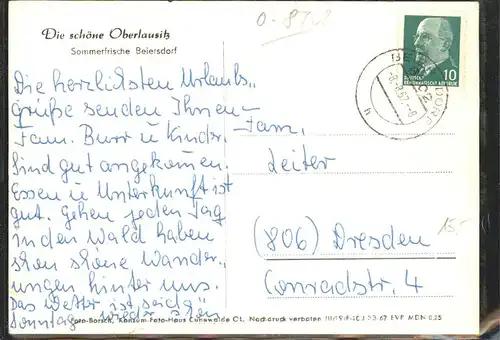 Die schöne Oberlausitz
Sommerfrische Beiersdorf
O-8712
10
Die herzlichsten Urlaubs
grüße senden Ihnen
Fam. Burr u Kinder.
Sind gut angekommen.
Essen u Unterkunft ist
gut. Gehen jeden Tag
in den Wald haben
schon schöne Wander-
ungen hinter uns.
Das Wetter ist seid
Sonntag wieder schön
Fam.
Leiter
(806) Dresden
Conradstr. 4
15,-
Foto-Borsch, Konsum Foto-Haus Cunewalde OL, Nachdruck verboten 3 67 EVP MDN 0,25